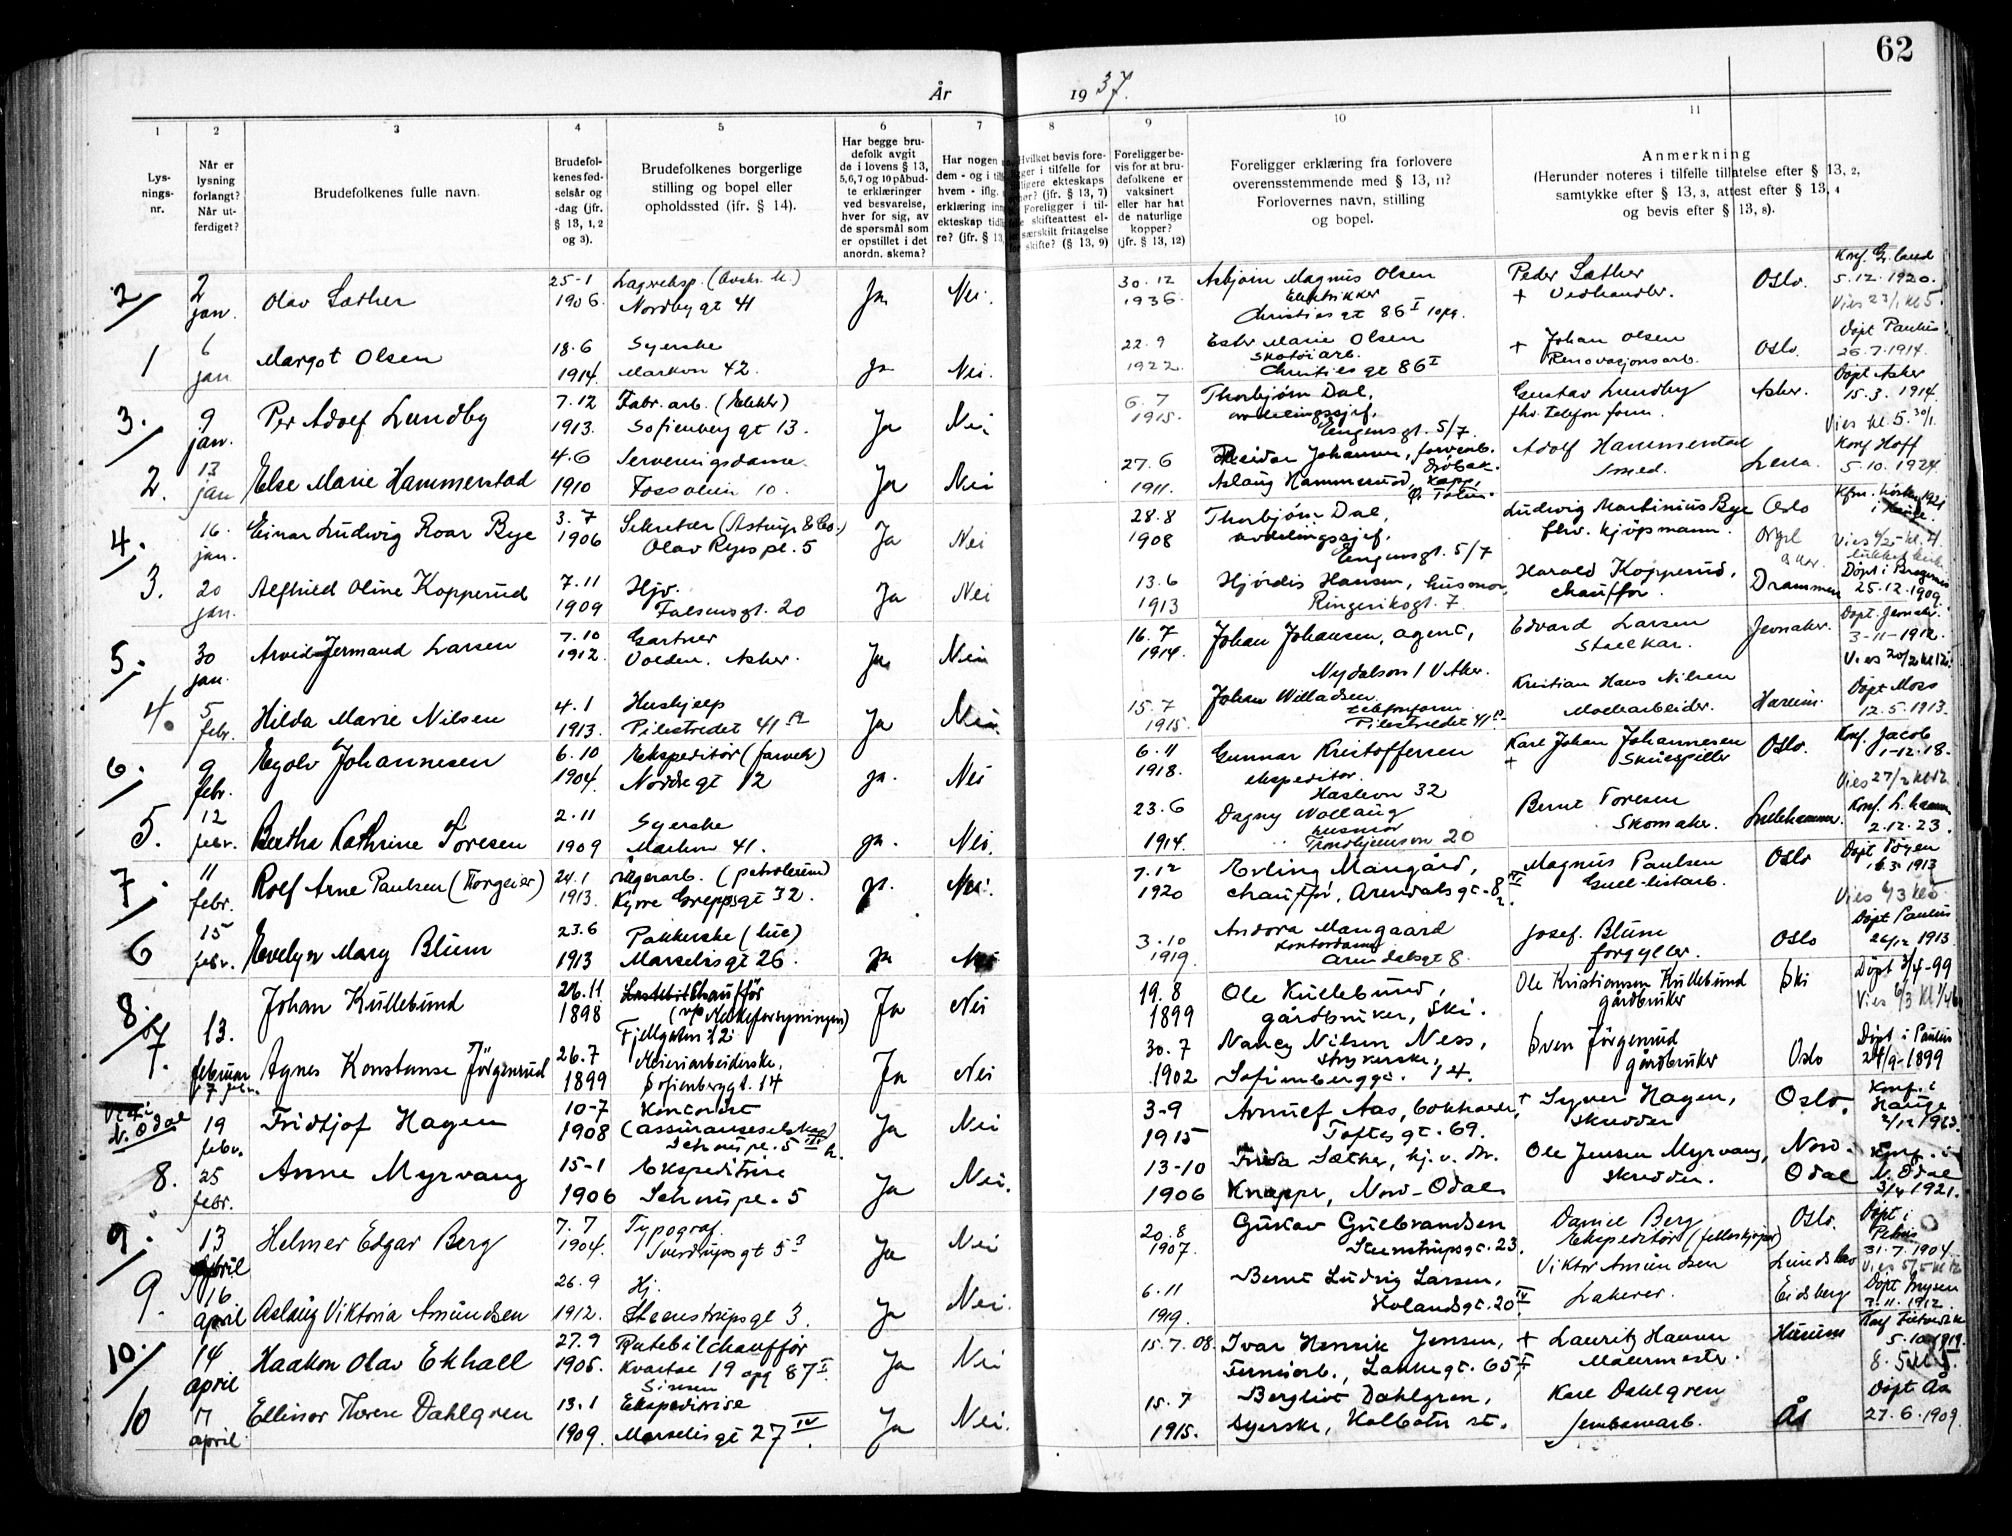 62
År 1937.
1 2 3 4 5 6 7 8 9 10 11
Lys-
nings-
nr.
Når er
lysning
forlangt?
Når ut-
ferdiget?
Brudefolkenes fulle navn.
Brudefol-
kenes fød-
selsår og
-dag (jfr.
§ 13, 1, 2
og 3).
Brudefolkenes borgerlige
stilling og bopel eller
opholdssted (jfr. § 14).
Har begge bru-
defolk avgit
de i lovens § 13,
5, 6, 7 og 10 påbud-
te erklæringer
ved besvarelse,
hver for sig, av
de spørsmål som
er opstillet i det
anordn. skema?
Har nogen
dem - og i
hvem - iflg.
erklæring
ekteskap
re? (jfr. § 13,
Hvilket bevis fore-
ger i tilfelle for
ligere ekteskaps
(jfr. § 13, 7)
Foreligger i til-
skifteattest el-
særskilt fritagelse
skifte? (§ 13, 9)
Foreligger be-
vis for at bru-
defolkene er
vaksinert
eller har hat
de naturlige
kopper?
(jfr. § 13, 12)
Foreligger erklæring fra forlovere
overensstemmende med § 13, 11?
Forlovernes navn, stilling
og bopel.
Anmerkning
(Herunder noteres i tilfelle tillatelse efter § 13, 2,
samtykke efter § 13, 3, attest efter § 13, 4
og bevis efter § 13, 8).
2 2 jan. Olav Sæther 25-1 1906 Nordby gt 41 Ja Nei. 30.12 1936 Asbjørn Magnus Olsen Elektrikker Christies gt 86 I Peder Sæther + Vedhandler. Oslo. 5.12.1920. Vies 23/1 kl 5.
1 6 jan Margot Olsen 18.6 1914. Syerske Markvn 42. Ja Nei. 22.9 1922 Ester Marie Olsen Skotøiarb. Christies gt 86 I + Johan Olsen Renovasjonsarb. Oslo. Døpt Paulus 26.7.1914.
3. 9 jan. Per Adolf Lundby 7.12 1913. Fabr. arb. Sofienberg gt 13. Ja Nei 6.7 1915. Thorbjørn Dal, avdelingssjef, Eugensgt. 5/7 Gustav Lundby fhv. telefon form. Asker. Døpt Asker 15.3.1914. Vies kl 5. 30/1.
2. 13 jan Else Marie Hammerstad 4.6 1910 Serveringsdame. Fossveien 10. Ja Nei 27.6 1911. Reidar Johansen, Aslaug Hammerstad, Kapp, Ø. Toten. Adolf Hammerstad Smed. Lena. Konf Hoff 5.10.1924.
4. 16. jan. Einar Ludvig Roar Bye 3.7 1906 Sekretær (Astrup & Co.) Olav Ryes pl. 5 Ja Nei 28.8 1908 Thorbjørn Dal, avdelingssjef, Eugensgt. 5/7 Ludvig Martinius Bye fhv. kjøpmann. Oslo
3. 20 jan. Alfhild Oline Kopperud 7.11 1909 Hjv. Falsensgt. 20 Ja Nei 13.6 1913 Hjørdis Hansen, husmor, Ringeriksgt. 7 Harald Kopperud, chauffør. Drammen Døpt i Bragernes 25.12.1909.
5. 30 jan. Arvid Jermand Larsen 7.10 1912. Gartner Volden. Asker. Ja Nei 16.7 1914. Johan Johansen, agent, Nydalsvn 1 V. Aker. Edvard Larsen Stallkar. Jevnaker. Døpt. Jevnaker. 3-11-1912. Vies 20/2 kl 12.
4. 5 febr. Hilda Marie Nilsen 4.1 1913. Hushjelp Pilestredet 41 Ja Nei. 15.7 1915. Johan Willadsen telefonform Pilestredet 41 Kristian Hans Nilsen Møllearbeider. Døpt Moss 12.5.1913.
6. 9 febr. Egolv Johannesen 6.10 1904. Ekspeditør Nordre gt 12 ja. Nei 6.11 1918. Gunnar Kristoffersen ekspeditør. Haslevn 32 Karl Johan Johannesen + Skuespiller Oslo. Konf. Jacob 1-12-18. Vies 27/2 kl 12.
5. 12 febr. Bertha Kathrine Toresen 2.11 1909 Syerske Markvn 41. ja. Nei. 23.6 1914. Dagny Wollaug husmor Trondhjemsvn 20 Bernt Toresen Skomaker. Lillehammer. Konf. L.hamm 2.12.23.
7. 11 febr. Rolf Arne Paulsen (Torgeir) 24.1 1913. lagerarb. (petroleum) Kyrre Greppsgt 32. ja. Nei. 7.12 1920 Erling Mangård, chauffør, Arendalsgt. 8 Magnus Paulsen Gull-listarb. Oslo Vies 6/3 kl 5.
6 15 febr. Evelyn Mary Blum 23.6 1913 Pakkerske Marselisgt 26. ja Nei 3.10 1919. Andora Mangaard Kontordame Arendalsgt 8. Josef Blum forgyller. Oslo Døpt Paulus 26/12 1913.
8. 13. Johan Kullebund 26.11 1898 Chauffør Fjellgaten 12 Ja Nei 19.8 1899 Ole Kullebund, gårdbruker, Ski. Ole Kristiansen Kullebund gårdbruker Ski Døpt 3/4-99
7. februar 17 febr. Agnes Konstanse Jörgenrud 26.7 1899 Meieriarbeiderske, Sofienberggt. 14 Ja Nei 30.7 1902 Nancy Nilsen Ness, strykerske, Sofienberggt. 14. Sven Jörgenrud gårdbruker Oslo Døpt i Paulus 24/9-1899
Viet i N. Odal 19 febr. Fridtjof Hagen 10-7 1908 Kontorist (assuranseselskap) Schouspl. 5 III Ja Nei 3-9 1915 Arnulf Aas, bokholder, Toftes gt. 69. + Syver Hagen, skredder Oslo. Konf. i Hauge
8. 25 febr. Anne Myrvang 15-1 1906 Ekspeditrise Schouspl. 5 Ja Nei. 13-10 1906 Frida Sæther, Knapper, Nord-Odal Ole Jensen Myrvang, skredder. Nord-Odal Konf. i N. Odal 3/4 1921.
9. 13 april Helmer Edgar Berg 7.7 1904. Typograf. Sverdrupsgt 5 Ja Nei 20.8 1907. Gustav Gulbrandsen Steenstrupsgt. 23. Daniel Berg Ekspeditør Oslo. Døpt i Petrus 31.7.1904.
9. 16 april Aslaug Viktoria Amundsen 26.9 1912. Hj. Steenstrupsgt 3. Ja Nei. 6.11 1919. Bernt Ludvig Larsen, Holandsgt. 20 IV Viktor Amundsen Lakerer. Eidsberg Døpt Mysen 3.11.1912.
10. 14 april Haakon Olav Ekhall 27.9 1905. Rutebilchauffør Kvartal 19 opg 87 I. Sinsen Ja Nei 15.7.08. Ivar Henrik Jensen, + Lauritz Hansen Malermester. Hurum
10 17 april Ellinor Therese Dahlgren 13.1 1909. Ekspeditrise Marselisgt 27 IV. Ja Nei. 15.7 1915. Bergliot Dahlgren, syerske, Kolbotn st. Karl Dahlgren Jernbanearb. Ås Døpt Ås 27.6.1909.